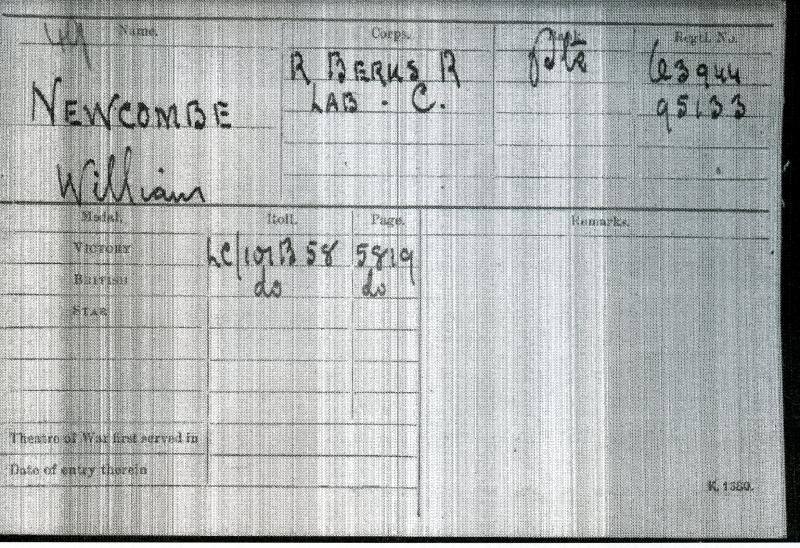 Name. Corps. Rank. Regtl. No.
R BERKS R Pte 63944
NEWCOMBE LAB - C. 95133
William
Medal. Roll. Page. Remarks.
VICTORY LC/101B58 5819
BRITISH do do
STAR
Theatre of War first served in
Date of entry therein
K. 1380.